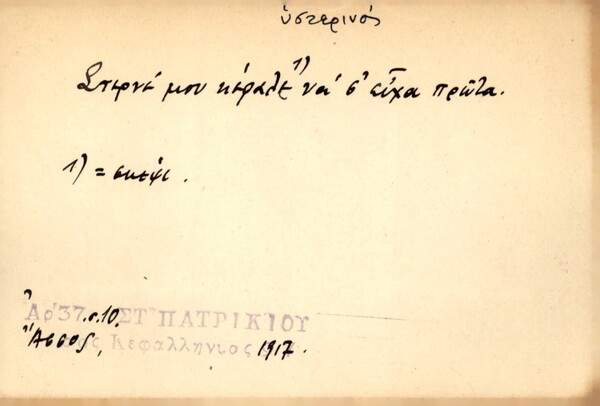 ὑστερινός
Στερνέ μου κέφαλε¹⁾ νά σ' εἶχα πρῶτα.
1) = σκέψι.
Ἀρ 37 σ. 10. ΣΤ ΠΑΤΡΙΚΙΟΥ
Ἄσσος, Κεφαλληνίος 1917.